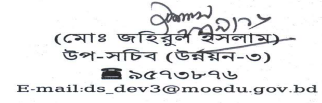 (মোঃ জহিরুল ইসলাম)
উপ-সচিব (উন্নয়ন-৩)
☎ ৯৫৭৩৮৭৬
E-mail:ds_dev3@moedu.gov.bd